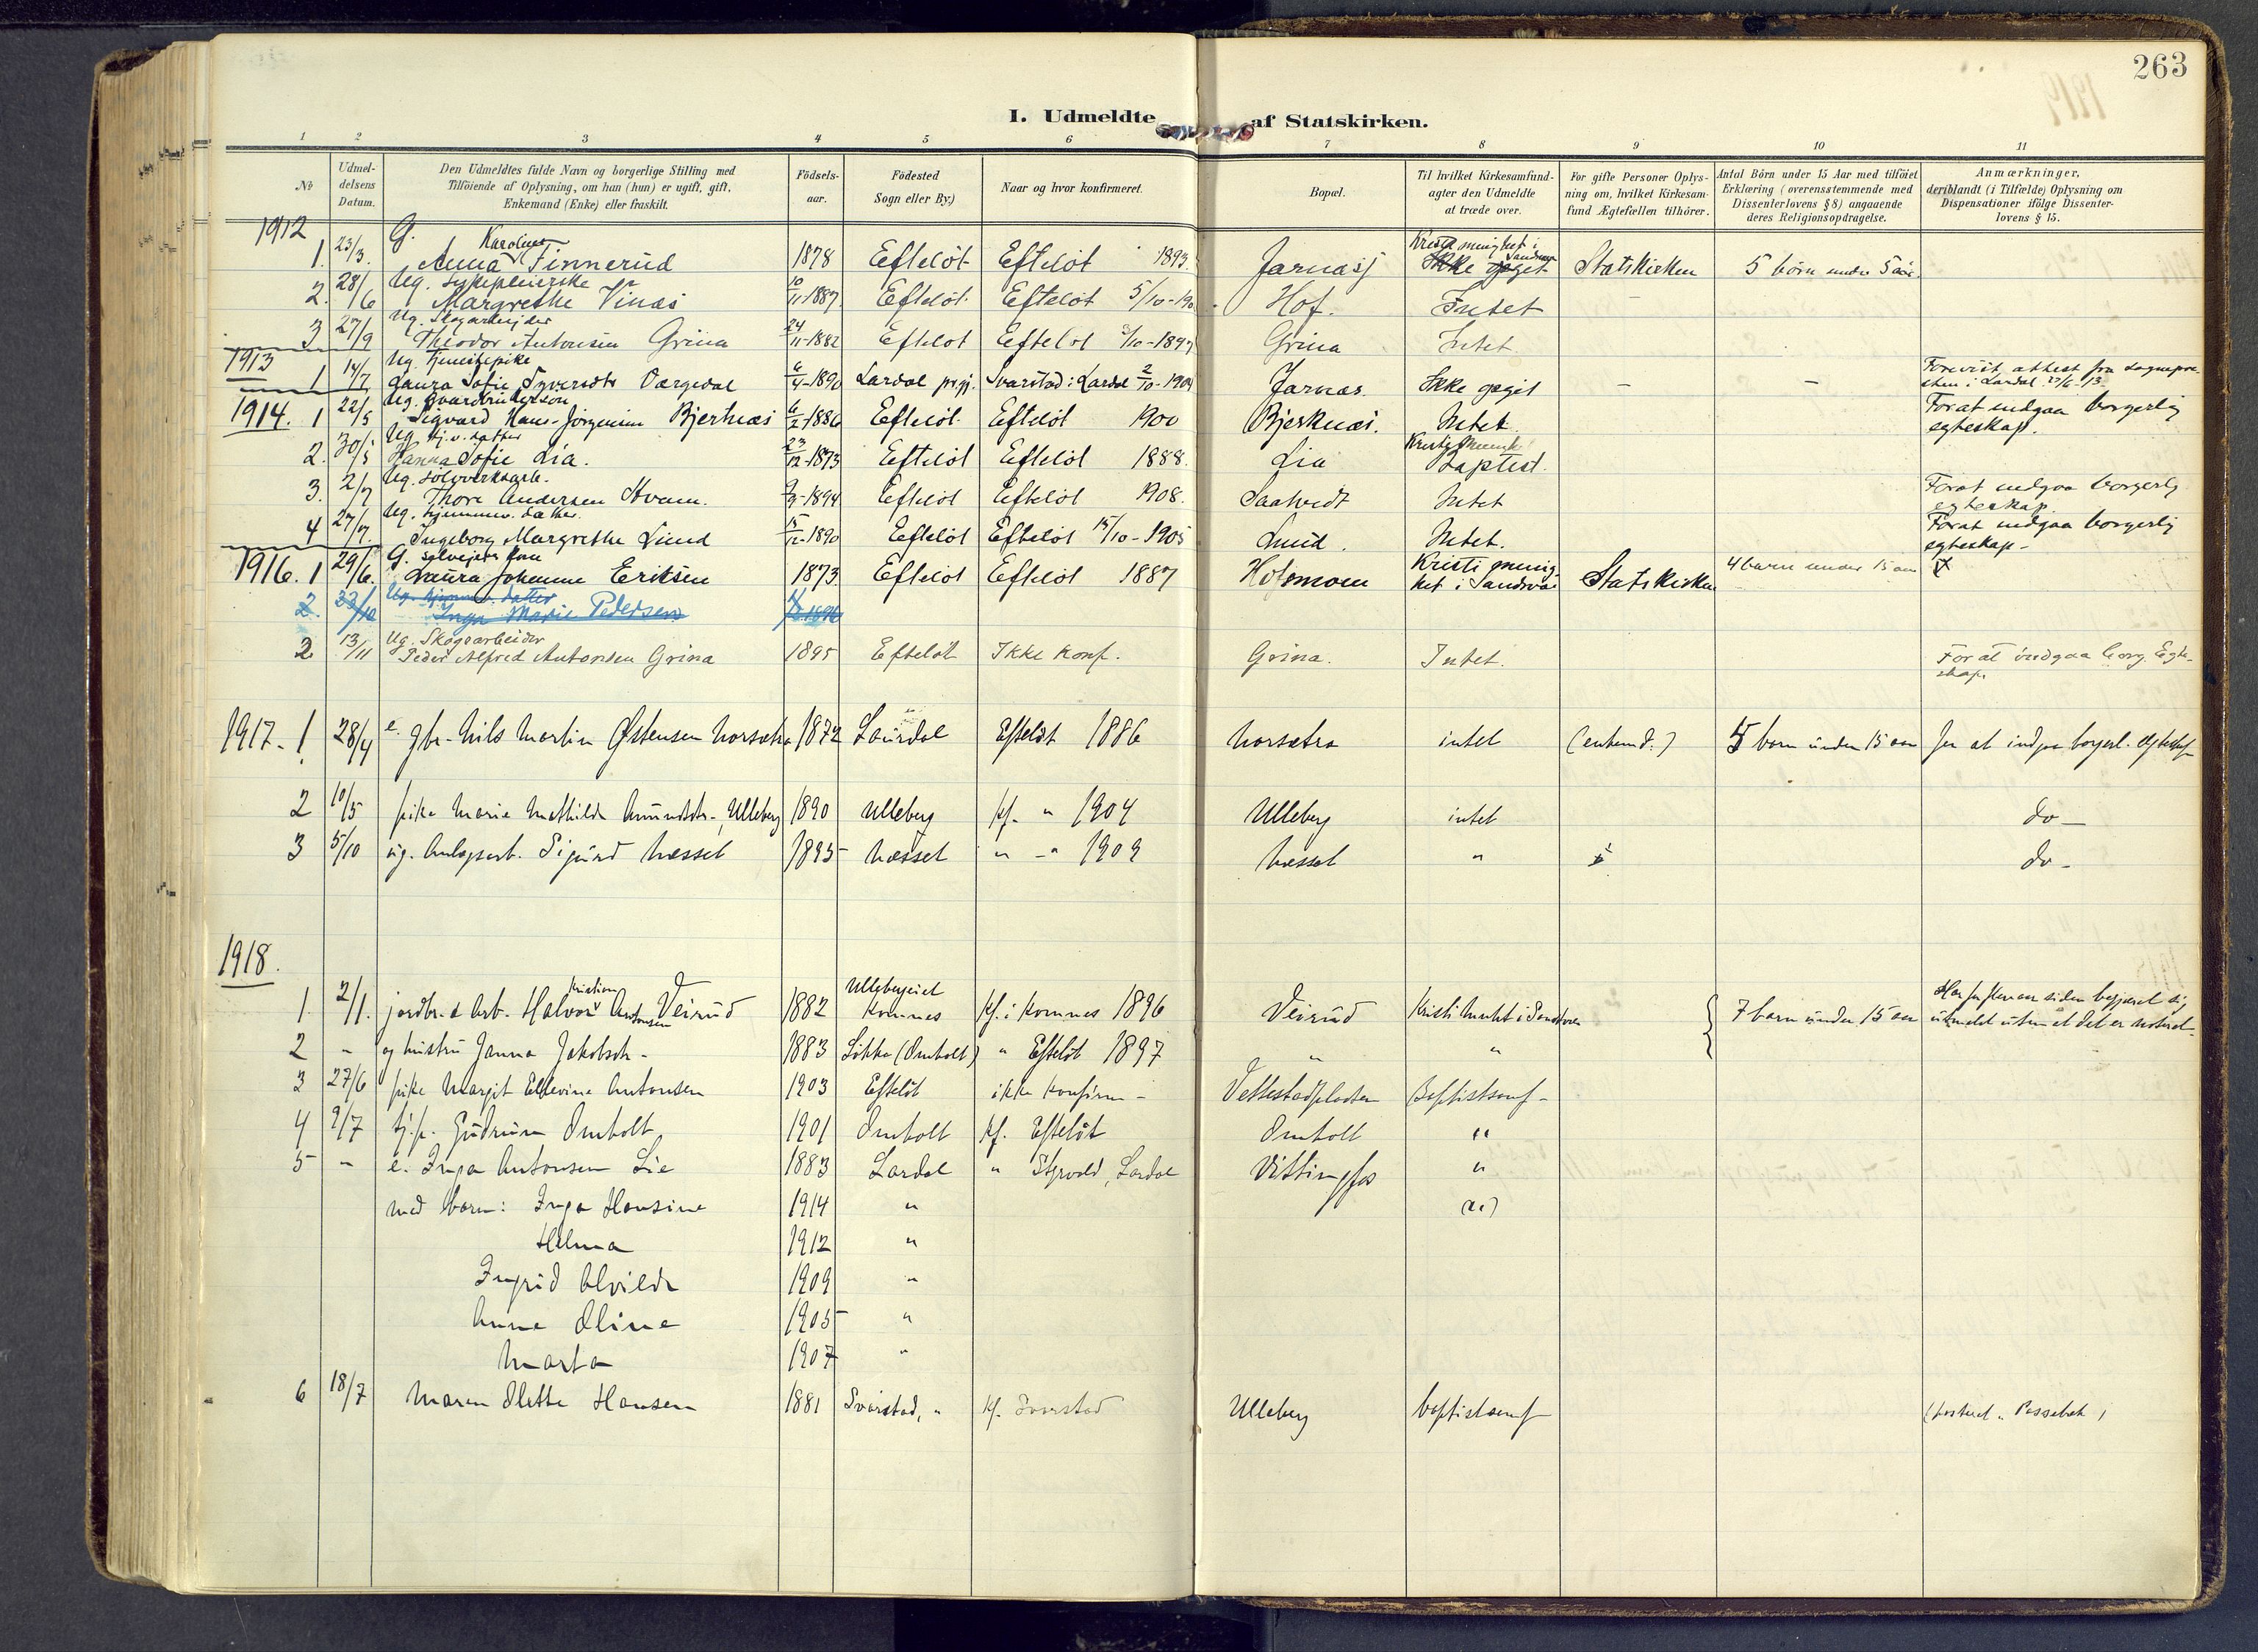 263
I. Udmeldte af Statskirken.
1 2 3 4 5 6 7 8 9 10 11
No
Udmel-
delsens
Datum.
Den Udmeldtes fulde Navn og borgerlige Stilling med
Tilföiende af Oplysning, om han (hun) er ugift, gift,
Enkemand (Enke) eller fraskilt.
Födsels-
aar.
Födested
Sogn eller By.)
Naar og hvor konfirmeret.
Bopæl.
Til hvilket Kirkesamfund-
agter den Udmeldte
at træde over.
For gifte Personer Oplys-
ning om, hvilket Kirkesam-
fund Ægtefællen tilhörer.
Antal Börn under 15 Aar med tilföiet
Erklæring (overensstemmende med
Dissenterlovens § 8) angaaende
deres Religionsopdragelse.
Anmærkninger,
deriblandt (i Tilfælde) Oplysning om
Dispensationer ifölge Dissenter-
lovens § 15.
1912
G. Karoline Kristi menighet i Sandsvær
1. 23/3. Anna Finnerud 1878 Efteløt Efteløt 1893. Jarnæs Ikke opgit Statskirken 5 børn under 5 aar
Ug. Sykepleierske
2. 28/6 Margrethe Vinæs 10/11-1887 Efteløt Efteløt 5/10-190 Hof. Intet
Ug. Skogarbeider
3 27/9 Theodor Antonsen Grina 24/11-1882 Efteløt Efteløt /10-1897 Grina Intet
1913
Ug. Tjenestepike
1 14/7 Laura Sofie Syversdtr Værgedal 6/4-1890 Lardal prgj. Svarstad i Lardal 2/10-1904 Jarnæs. Ikke opgit - - Forevist attest fra sognepre-
sten i Lardal 27/6-13
Ug. Gaardbrukersøn
1914. 1 22/5 Sigvard Hans-Jørgensen Bjerknæs 6/2-1886 Efteløt Efteløt 1900 Bjerknæs. Intet. For at indgaa borgerlig
egteskap.
Ug. hj.v. datter
2. 30/5 Hanna Sofie Lia. 23/12-1873 Efteløt Efteløt 1888. Lia Kristi Menigh. Baptist.
Ug. sølvverksarb.
3. 2/7 Thore Andersen Hvam. 9/9-1894 Efteløt Efteløt 1908. Saatvedt Intet For at indgaa borgerlig
egteskap.
Ug. hjemmev. datter
4 27/7. Ingeborg Margrethe Lund 15/12-1890 Efteløt Efteløt 15/10-1905 Lund. Intet. For at indgaa borgerlig
egteskap-
G. selveiers kone
1916. 1 29/6. Laura Johanne Eriksen 1873 Efteløt Efteløt 1887 Holmmoen Kristi menig
het i Sandsvær Statskirken 4 barn under 15 aar
Ug. hjemmev. datter
2. 23/10 Inga Marie Pedersen 1896
Ug. Skogsarbeider
2 13/11 Peder Alfred Antonsen Grina 1895 Efteløt Ikke konf. Grina. Intet. For at indgaa borg. Egte-
skap.
1917. 1 28/4 e. gbr. Nils Martin Østensen Narsætra 1872 Laurdal Efteløt 1886 Narsætra intet (enkemd.) 5 barn under 15 aar for at indgaa borgerl. egteskap
2 10/5 pike Marie Mathilde Amundsdtr. Ulleberg 1890 Ulleberg kf. " 1904 Ulleberg intet do-
3 5/10 ug. Anlægsarb. Sigurd Næsset 1895 Næsset " -" 1909 Næsset " do-
1918.
1. 2/1. jordbr. & arb. Halvor Kristian Antonsen Veirud 1882 Ullebergeiet
Komnes kf. i Komnes 1896 Veirud Kristi Menht i Sandsvær 7 barn under 15 aar Har for flere aar siden begjæret sig
utmeldt uten at det er noteret
2 - og hustru Janna Jakobsdr. 1883 Likka (Omholt) " Efteløt 1897 " "
3 27/6 pike Margit Ellevine Antonsen 1903 Efteløt ikke konfirm- Vettestadpladsen Baptistsamf-
4 9/7 tj.p. Gudrun Omholt 1901 Omholt kf. Efteløt Omholt "
5 - e. Inga Antonsen Lie 1883 Lardal " Styrvold, Lardal Vittingfos "
med barn: Inga Hansine 1914 "
Helma 1912 "
Ingrid Alvilde 1909 "
Anne Oline 1905 "
Marta 1907 "
6 18/7 Maren Olette Hansen 1881 Svarstad, " kf. Svarstad Ulleberg baptistsamf (poststed: Passebæk)